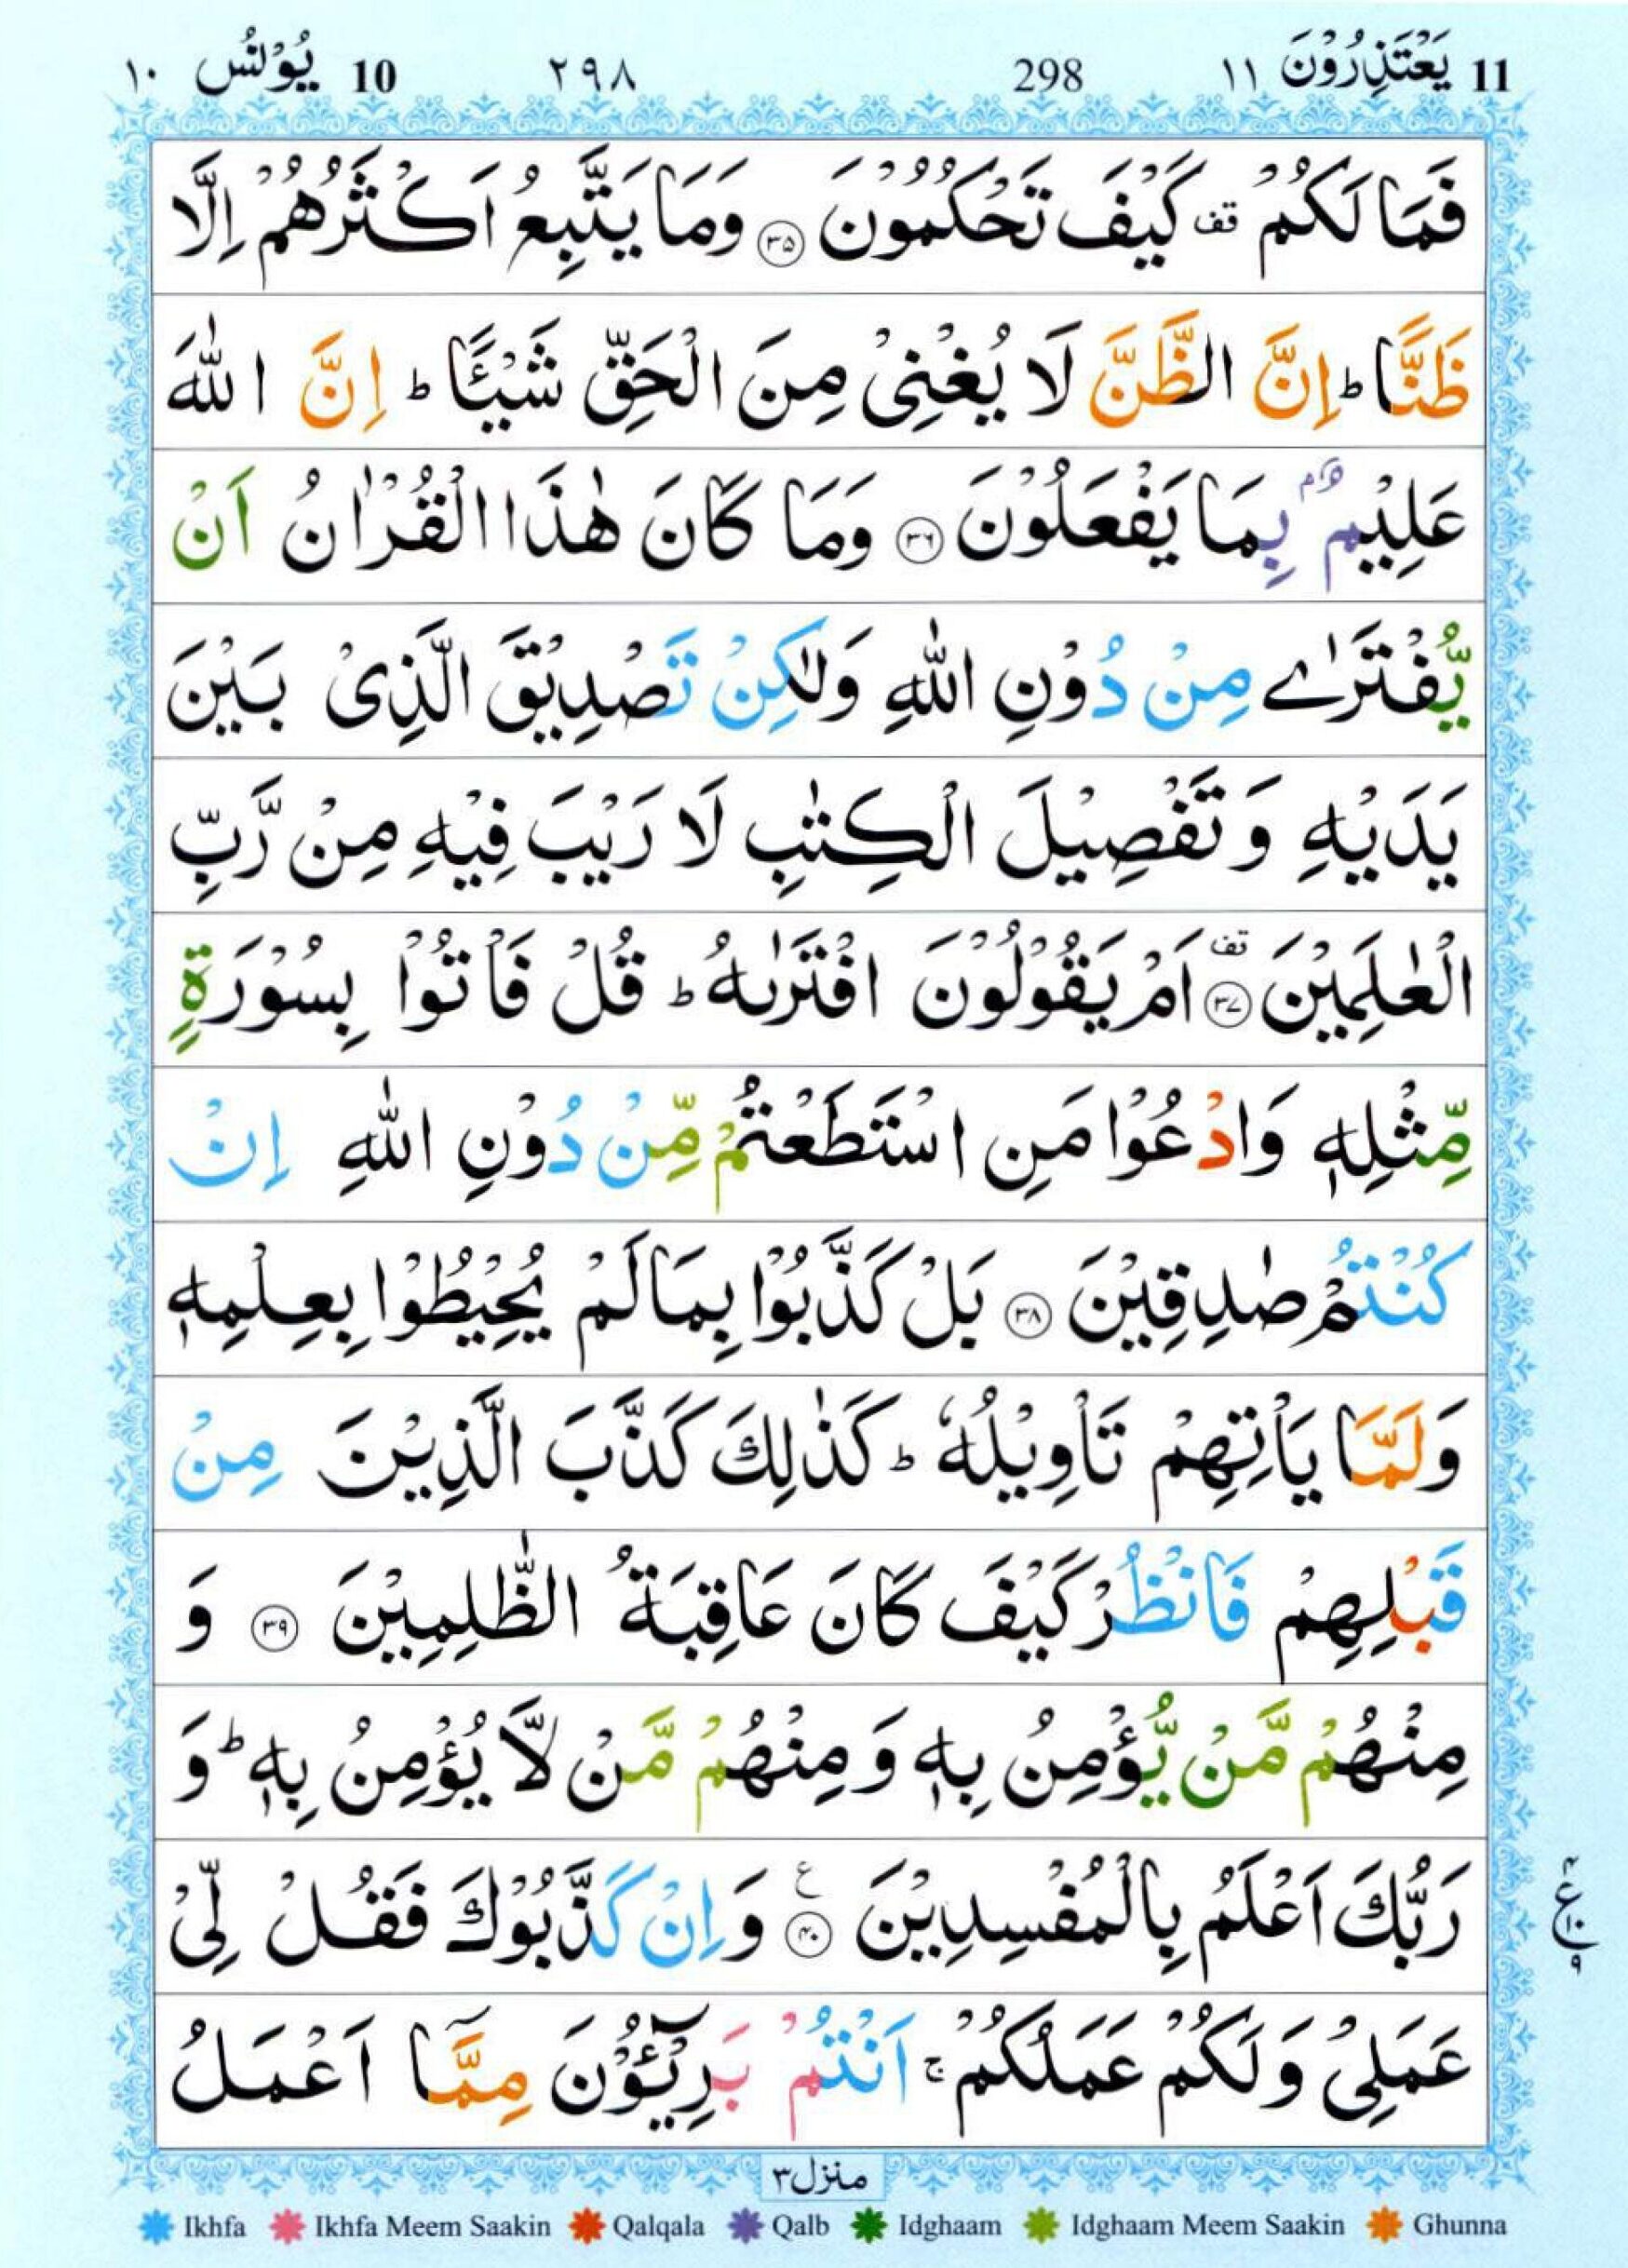 11 يَعْتَذِرُوْنَ ١١ 298 ٢٩٨ 10 يُوْنُس ١٠
فَمَا لَكُمْ قف كَيْفَ تَحْكُمُوْنَ ۝٣٥ وَمَا يَتَّبِعُ اَكْثَرُهُمْ اِلَّا
ظَنًّا ؕ اِنَّ الظَّنَّ لَا يُغْنِىْ مِنَ الْحَقِّ شَيْـًٔا ؕ اِنَّ اللّٰهَ
عَلِيْمٌۢ بِمَا يَفْعَلُوْنَ ۝٣٦ وَمَا كَانَ هٰذَا الْقُرْاٰنُ اَنْ
يُّفْتَرٰى مِنْ دُوْنِ اللّٰهِ وَلٰكِنْ تَصْدِيْقَ الَّذِىْ بَيْنَ
يَدَيْهِ وَ تَفْصِيْلَ الْكِتٰبِ لَا رَيْبَ فِيْهِ مِنْ رَّبِّ
الْعٰلَمِيْنَ ۝٣٧ قف اَمْ يَقُوْلُوْنَ افْتَرٰىهُ ؕ قُلْ فَاْتُوْا بِسُوْرَةٍ
مِّثْلِهٖ وَادْعُوْا مَنِ اسْتَطَعْتُمْ مِّنْ دُوْنِ اللّٰهِ اِنْ
كُنْتُمْ صٰدِقِيْنَ ۝٣٨ بَلْ كَذَّبُوْا بِمَا لَمْ يُحِيْطُوْا بِعِلْمِهٖ
وَلَمَّا يَاْتِهِمْ تَاْوِيْلُهٗ ؕ كَذٰلِكَ كَذَّبَ الَّذِيْنَ مِنْ
قَبْلِهِمْ فَانْظُرْ كَيْفَ كَانَ عَاقِبَةُ الظّٰلِمِيْنَ ۝٣٩ وَ
مِنْهُمْ مَّنْ يُّؤْمِنُ بِهٖ وَ مِنْهُمْ مَّنْ لَّا يُؤْمِنُ بِهٖ ؕ وَ
رَبُّكَ اَعْلَمُ بِالْمُفْسِدِيْنَ ۝٤٠ ع وَ اِنْ كَذَّبُوْكَ فَقُلْ لِّىْ
٤ ع ١٠ ٩
عَمَلِىْ وَ لَكُمْ عَمَلُكُمْ ۚ اَنْتُمْ بَرِيْٓـُٔوْنَ مِمَّاۤ اَعْمَلُ
منزل ٣
Ikhfa Ikhfa Meem Saakin Qalqala Qalb Idghaam Idghaam Meem Saakin Ghunna